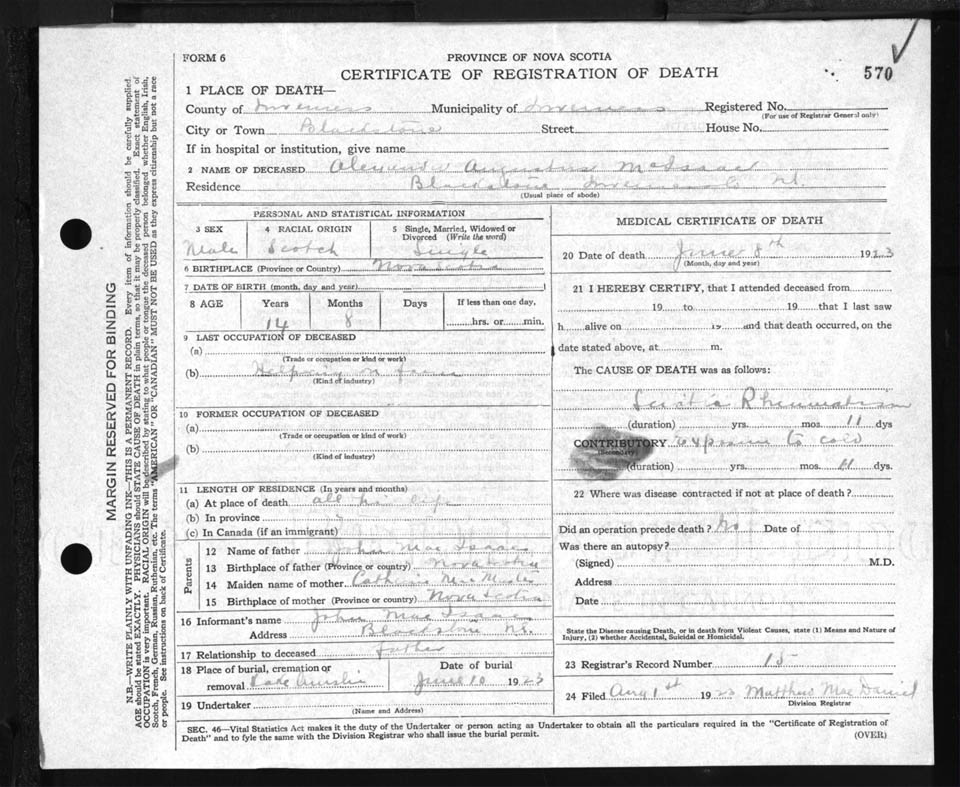 FORM 6
PROVINCE OF NOVA SCOTIA
CERTIFICATE OF REGISTRATION OF DEATH
570
1 PLACE OF DEATH—
County of Inverness Municipality of Inverness Registered No.
(For use of Registrar General only)
City or Town Blackstone Street House No.
If in hospital or institution, give name
2 NAME OF DECEASED Alexander Augustine McIsaac
Residence Blackstone Inverness Co
(Usual place of abode)
PERSONAL AND STATISTICAL INFORMATION
3 SEX
Male
4 RACIAL ORIGIN
Scotch
5 Single, Married, Widowed or
Divorced (Write the word)
Single
6 BIRTHPLACE (Province or Country) Nova Scotia
7 DATE OF BIRTH (month, day and year)
8 AGE Years Months Days If less than one day,
14 8 hrs. or min.
9 LAST OCCUPATION OF DECEASED
(a)
(Trade or occupation or kind or work)
(b) Helping on farm
(Kind of industry)
10 FORMER OCCUPATION OF DECEASED
(a)
(Trade or occupation or kind of work)
(b)
(Kind of industry)
11 LENGTH OF RESIDENCE (In years and months)
(a) At place of death all his life
(b) In province
(c) In Canada (if an immigrant)
Parents
12 Name of father John Mac Isaac
13 Birthplace of father (Province or country) Nova Scotia
14 Maiden name of mother Mac
15 Birthplace of mother (Province or country) Nova Scotia
16 Informant's name John Mac Isaac
Address Blackstone N.S.
17 Relationship to deceased father
18 Place of burial, cremation or
removal Lake Ainslie
Date of burial
June 10 1923
19 Undertaker
(Name and Address)
MEDICAL CERTIFICATE OF DEATH
20 Date of death June 8th 1923
(Month, day and year)
21 I HEREBY CERTIFY, that I attended deceased from
19 to 19 that I last saw
h alive on 19 and that death occurred, on the
date stated above, at m.
The CAUSE OF DEATH was as follows:
Rheumatism
(duration) yrs. mos. 11 dys
CONTRIBUTORY exposure to cold
(Secondary)
(duration) yrs. mos. 11 dys.
22 Where was disease contracted if not at place of death?
Did an operation precede death? No Date of
Was there an autopsy?
(Signed) M.D.
Address
Date
State the Disease causing Death, or in death from Violent Causes, state (1) Means and Nature of
Injury, (2) whether Accidental, Suicidal or Homicidal.
23 Registrar's Record Number 15
24 Filed Aug 1st 1923 Matthew Mac Daniel
Division Registrar
SEC. 46—Vital Statistics Act makes it the duty of the Undertaker or person acting as Undertaker to obtain all the particulars required in the "Certificate of Registration of
Death" and to fyle the same with the Division Registrar who shall issue the burial permit.
(OVER)
MARGIN RESERVED FOR BINDING
N.B.—WRITE PLAINLY WITH UNFADING INK—THIS IS A PERMANENT RECORD. Every item of information should be carefully supplied.
AGE should be stated EXACTLY. PHYSICIANS should STATE CAUSE OF DEATH in plain terms, so that it may be properly classified. Exact statement of
OCCUPATION is very important. RACIAL ORIGIN will be described by stating to what people or tongue the deceased person belonged whether English, Irish,
Scotch, French, German, Russian, Ruthenian, etc. The terms "AMERICAN" OR "CANADIAN" MUST NOT BE USED as they express citizenship but not a race
or people. See instructions on back of Certificate.